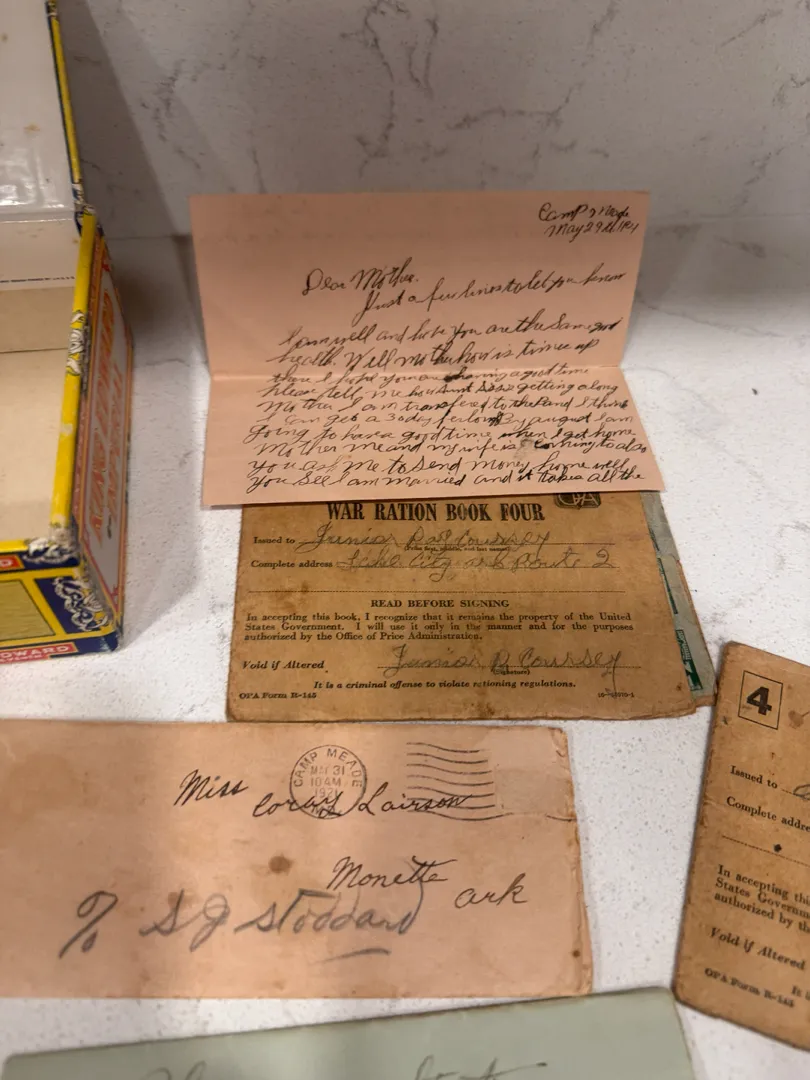 Camp Meade
May 29th 1921
Dear Mother.
Just a few lines to let you know
I am well and hope you are the same
health. Well mother how is times up
there I hope you are having a good time
Please tell me how Aunt is getting along
Mother I am transfered to the and I think
I can get a 30 day furlow By august I am
going to have a good time when I get home
Mother me and my wife is coming to also
You ask me to send money home well
You see I am married and it takes all the
WAR RATION BOOK FOUR
OPA
Issued to Junior Coursey
(Print first, middle, and last names)
Complete address Lake City ark Route 2
READ BEFORE SIGNING
In accepting this book, I recognize that it remains the property of the United
States Government. I will use it only in the manner and for the purposes
authorized by the Office of Price Administration.
Void if Altered Junior R Coursey
(Signature)
It is a criminal offense to violate rationing regulations.
OPA Form R-145
CAMP MEADE
MAY 31
10 AM
1921
Miss
Lairson
Monette
ark
% S J Stoddard
4
Issued to
Complete addre
In accepting this
States Governm
authorized by th
Void if Altered
It is
OPA Form R-145